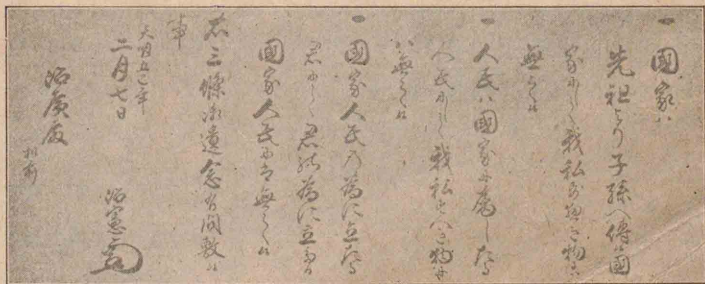 一 國家ハ
先祖より子孫へ傳候國
家にして我私すへき物にハ
無之候
一 人民ハ國家に属したる
人民にして我私すへき物に
ハ無之候
一 國家人民の為に立たる
君にして君の為に立たる
國家人民にハ無之候
右三條御遺念有間敷候
事
天明五巳年
二月七日 治憲
治廣殿
机前